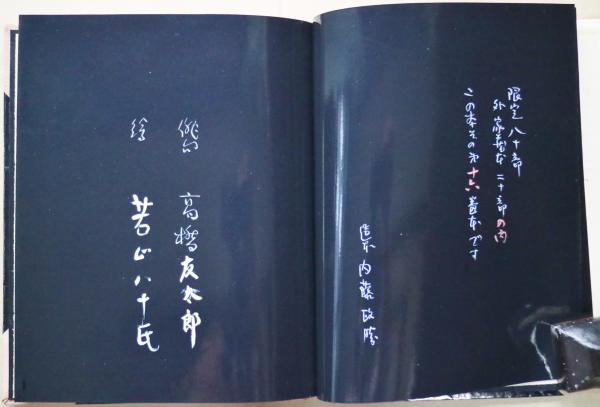 限定八十部
外家蔵本二十部の内
この本その第十六番本です
造本 内藤政勝
俳句 高橋友太郎
絵 若山八十氏